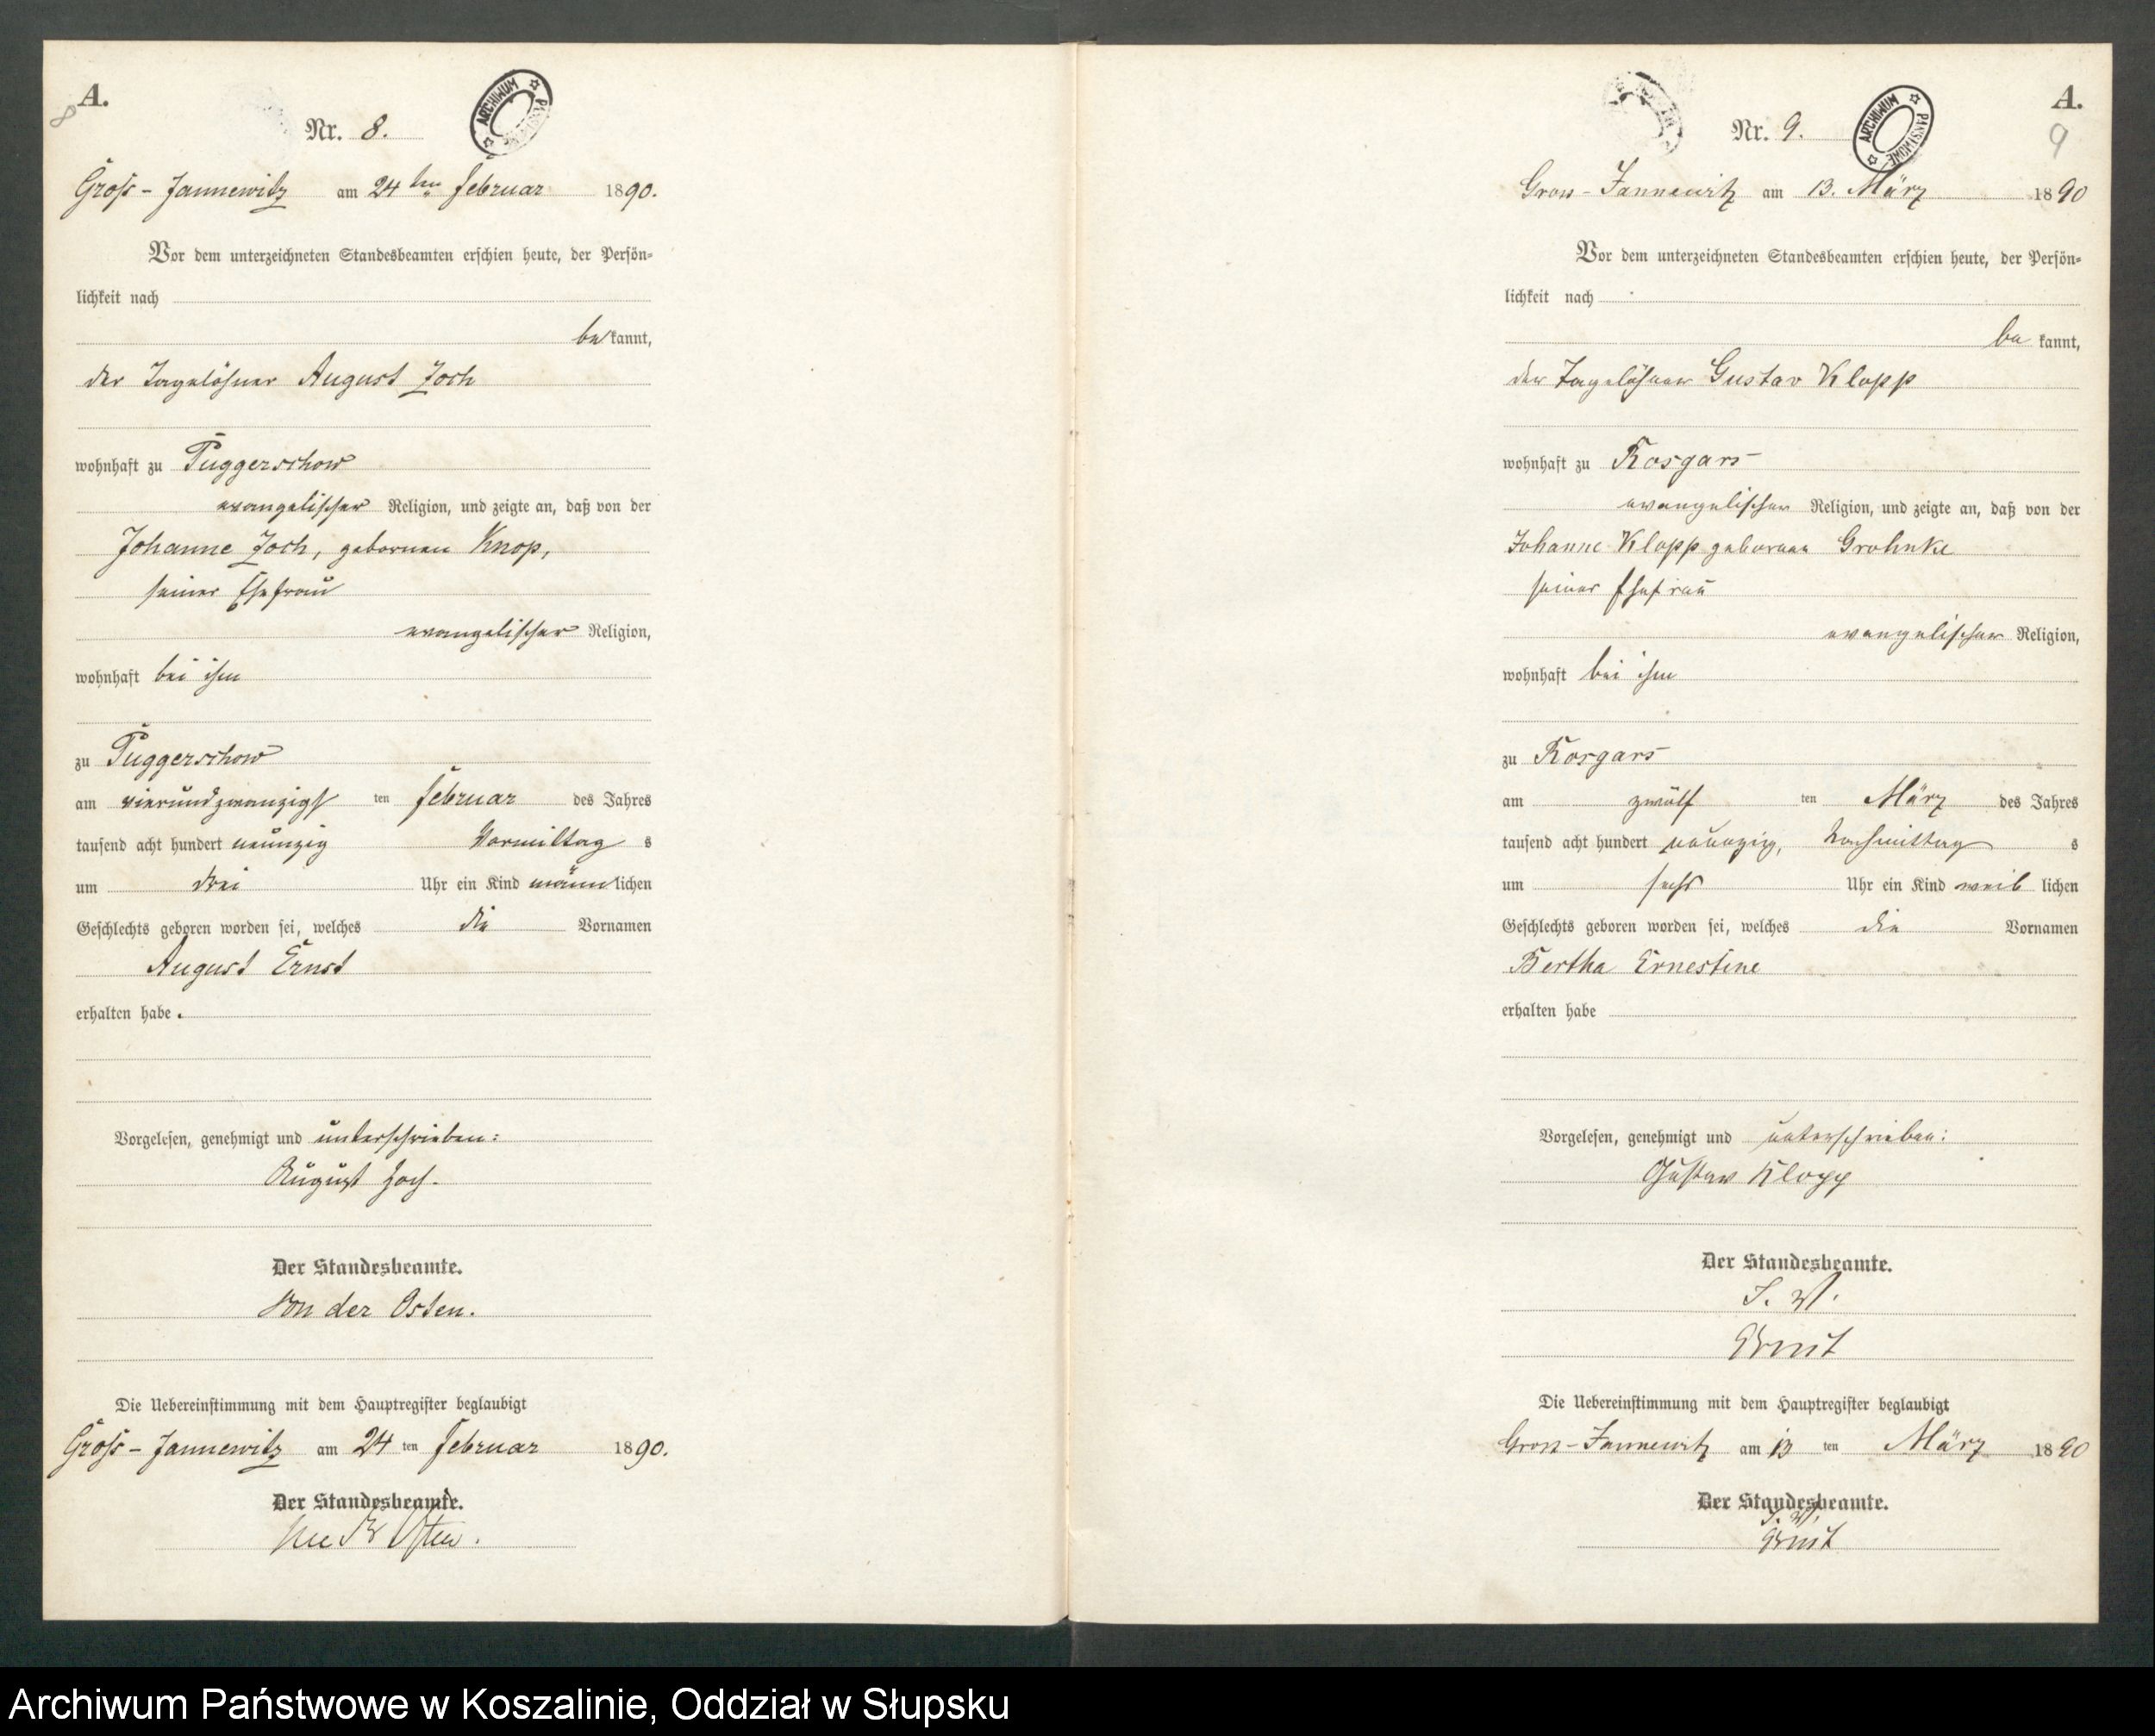 A.
8
Nr. 8.
ARCHIWUM PAŃSTWOWE
Groß-Jannewitz am 24ten Februar 1890.
Vor dem unterzeichneten Standesbeamten erschien heute, der Persön-
lichkeit nach
be kannt,
der Tagelöhner August Joch
wohnhaft zu Puggerschow
evangelischer Religion, und zeigte an, daß von der
Johanne Joch, geborenen Knop,
seiner Ehefrau
evangelischer Religion,
wohnhaft bei ihm
zu Puggerschow
am vierundzwanzigs ten Februar des Jahres
tausend acht hundert neunzig Vormittag s
um drei Uhr ein Kind männ lichen
Geschlechts geboren worden sei, welches die Vornamen
August Ernst
erhalten habe.
Vorgelesen, genehmigt und unterschrieben:
August Joch.
Der Standesbeamte.
Von der Osten.
Die Uebereinstimmung mit dem Hauptregister beglaubigt
Groß-Jannewitz am 24 ten Februar 1890.
Der Standesbeamte.
von der Osten.
A.
9
Nr. 9.
ARCHIWUM PAŃSTWOWE
Gross-Jannewitz am 13. März 1890
Vor dem unterzeichneten Standesbeamten erschien heute, der Persön-
lichkeit nach
be kannt,
der Tagelöhner Gustav Klopp
wohnhaft zu Rosgars
evangelischer Religion, und zeigte an, daß von der
Johanne Klopp geborenen Grohnke
seiner Ehefrau
evangelischer Religion,
wohnhaft bei ihm
zu Rosgars
am zwölf ten März des Jahres
tausend acht hundert neunzig, Nachmittag s
um sechs Uhr ein Kind weib lichen
Geschlechts geboren worden sei, welches die Vornamen
Bertha Ernestine
erhalten habe
Vorgelesen, genehmigt und unterschrieben:
Gustav Klopp
Der Standesbeamte.
I. V.
Ernst
Die Uebereinstimmung mit dem Hauptregister beglaubigt
Gross-Jannewitz am 13 ten März 1890
Der Standesbeamte.
I. V.
Ernst
Archiwum Państwowe w Koszalinie, Oddział w Słupsku